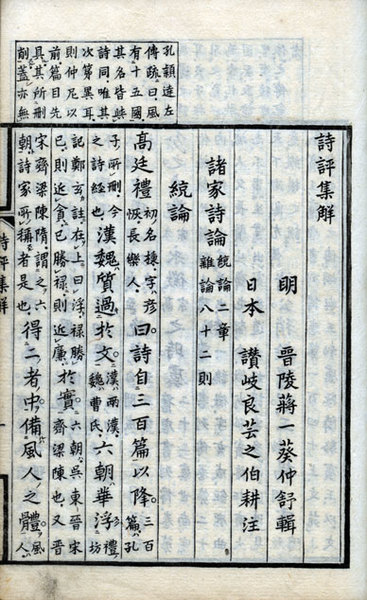 孔穎達左
傳疏曰風
有十五國
其名皆與
詩同唯其
次第異耳
則仲尼以
前篇目先
具其所刪
削蓋亦無
詩評集解
明 晉陵蔣一葵仲舒輯
日本 讚岐良芸之伯耕注
諸家詩論 統論二章 雜論八十二則
統論
高廷禮 初名棅字彥恢長樂人 曰詩自三百篇以降。三百篇孔
子所刪今之詩經也 漢魏質過於文。漢兩漢魏曹氏 六朝華浮 禮坊
記鄭玄註在上曰浮祿勝已則近貪已勝祿則近廉 於實。六朝吳東晉宋齊梁陳也又晉
宋齊梁陳隋謂之六朝詩家所稱者是也 得二者中備風人之體。風人
詩評集解